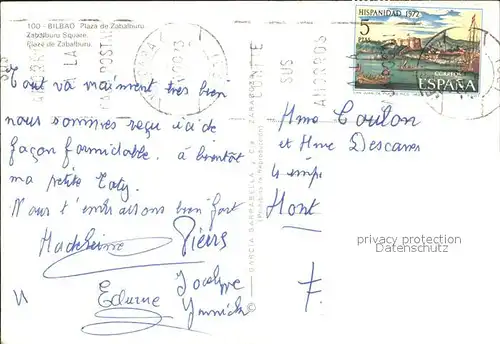 100 - BILBAO Plaza de Zabalburu
Zabalburu Square.
Place de Zabalburu.
HISPANIDAD 1972
5
PTAS
CORREOS
ESPAÑA
LA
CONFIE
SUS
AHORROS
Tout va vraiment très bien
nous sommes reçu ici de
façon formidable. à bientôt
ma petite Caty.
Nous t'embrassons bien fort
Madeleine Pierre
Jocelyne
Edurne Yannick
Mme Coulon
et Mme Descaves
4 imp
Mont
F.
GARCIA GARRABELLA Y Cª ZARAGOZA
(Prohibida la Reproducción)
privacy protection
DELCAMPE